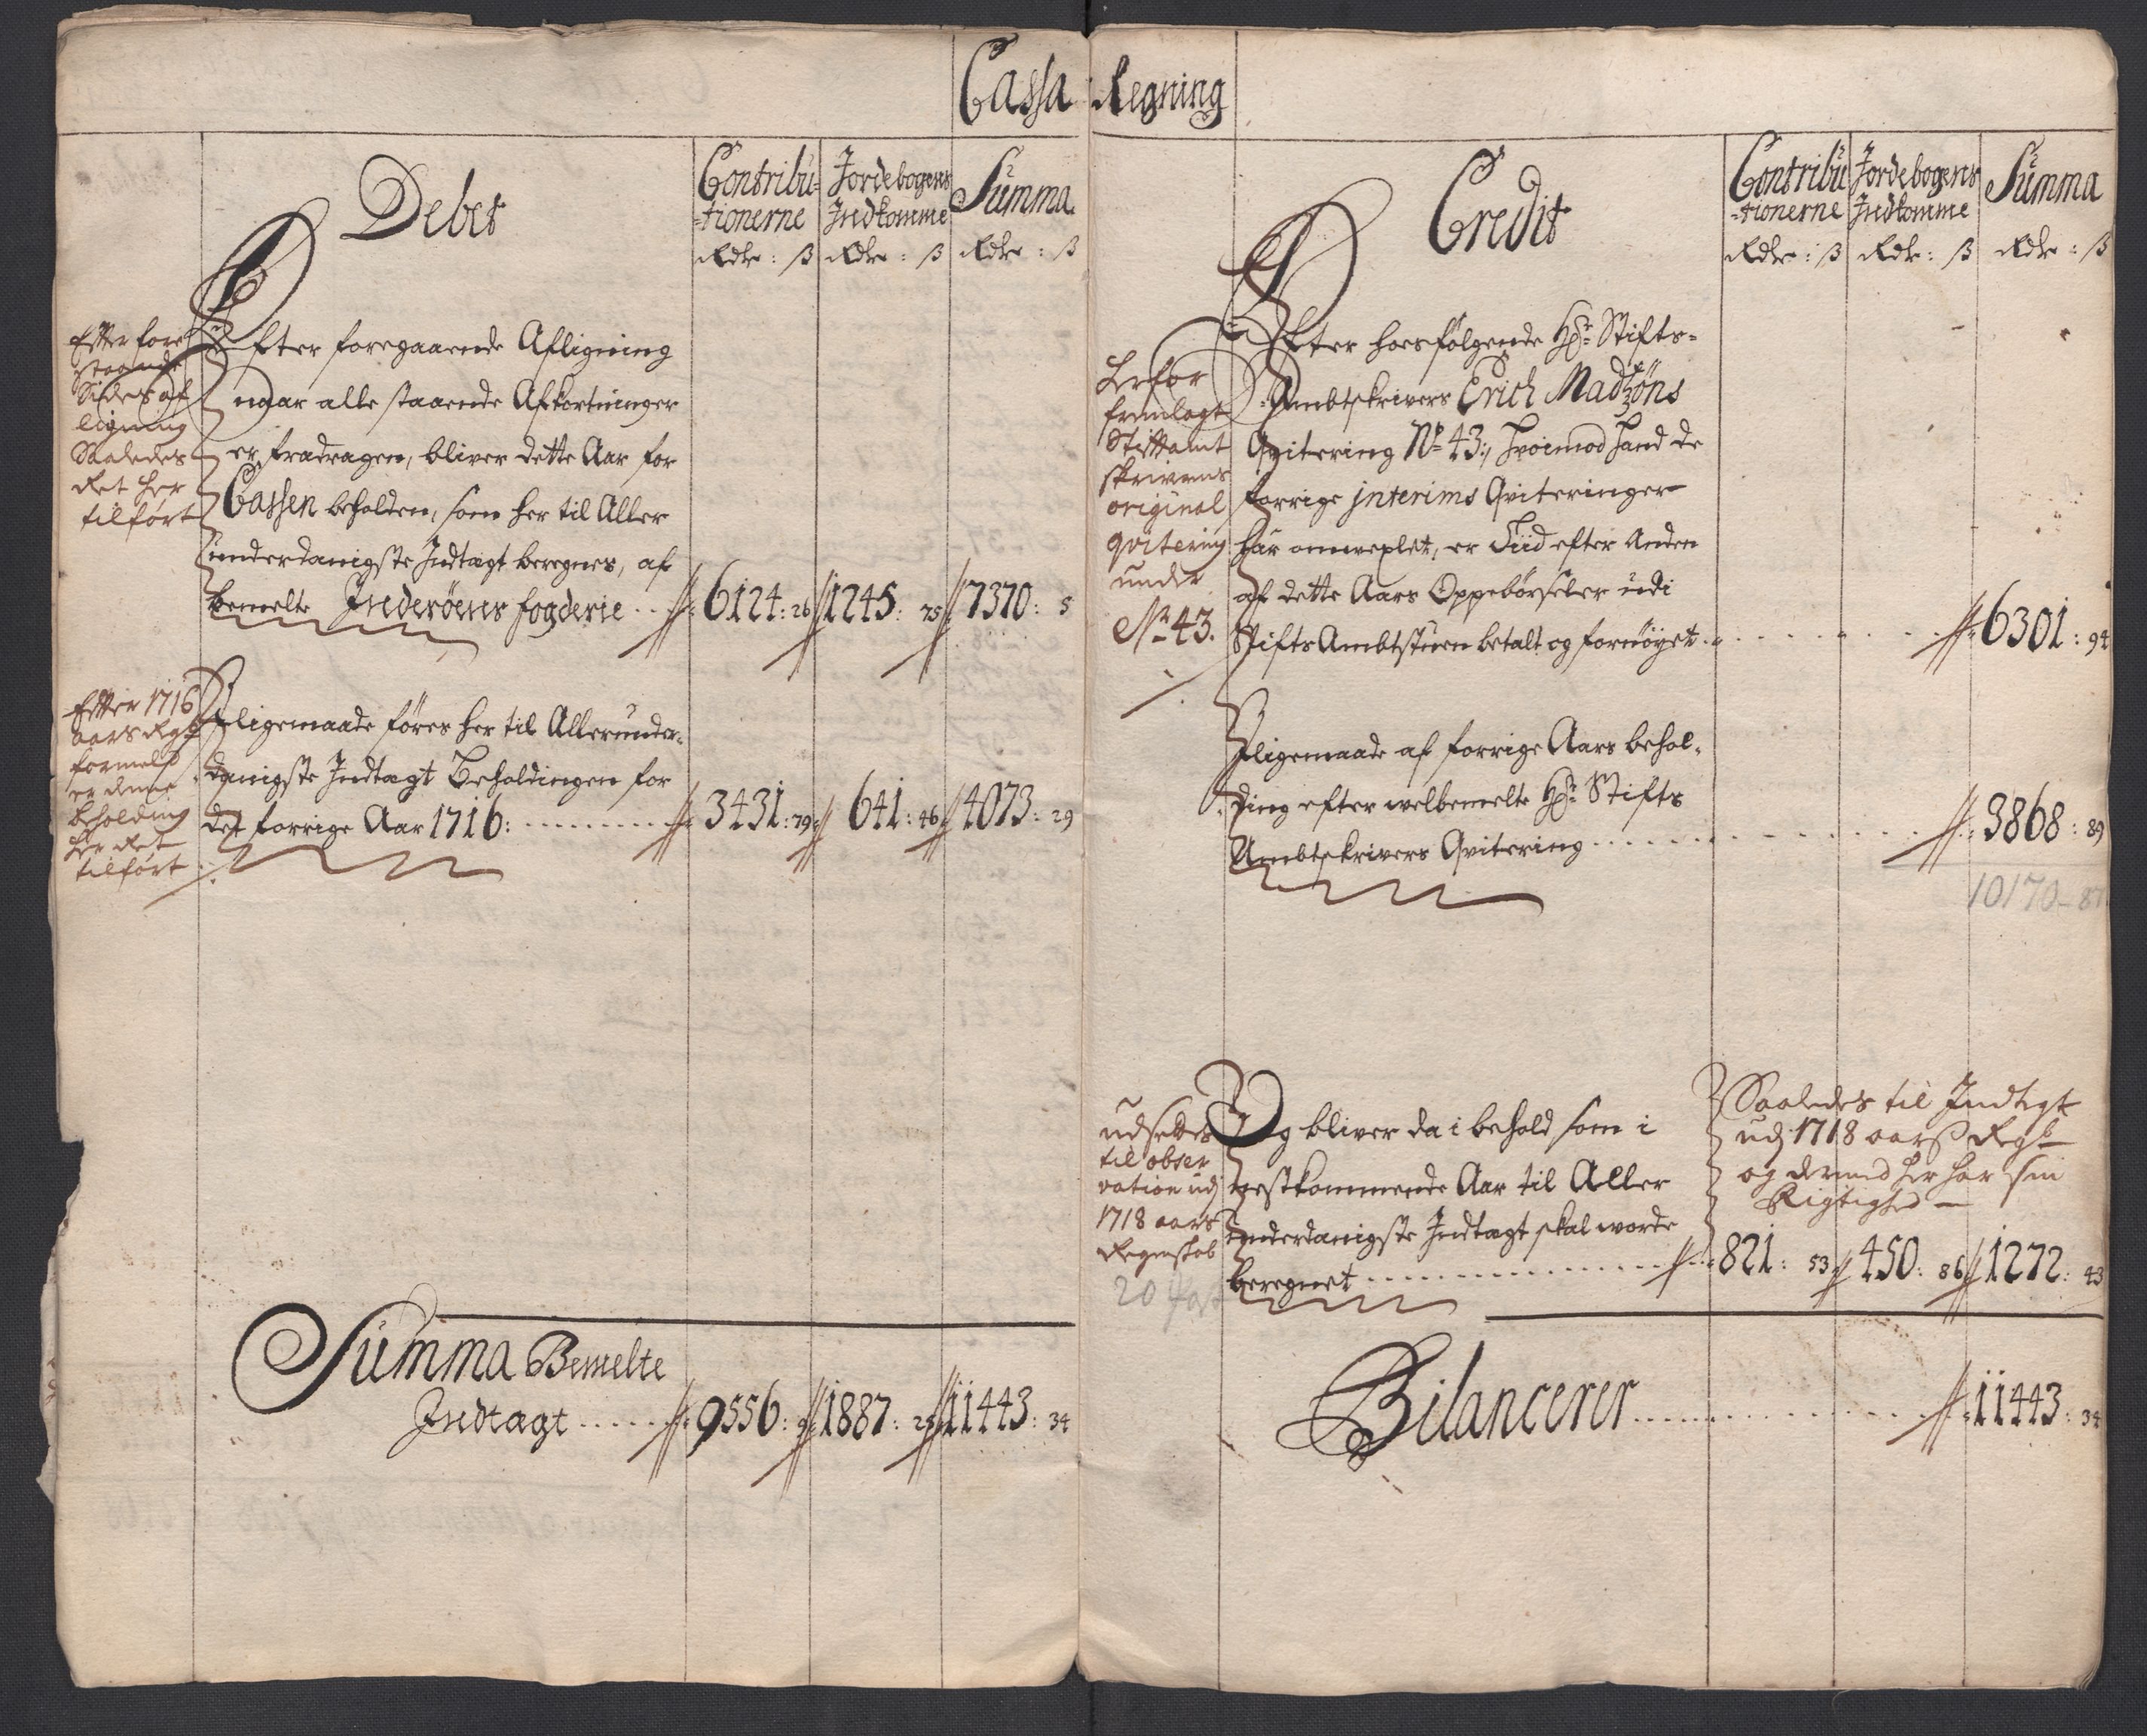 Cassa Regning
Debet
Contribu=
=tionerne
Rdr : ß
Jordebogens
Indkomme
Rdr : ß
Summa
Rdr : ß
Efter fore
staaende
Sides af
ligning
Saaledes
Ret her
tilført
Efter foregaaende Afligning
naar alle staaende Afkortninger
er fradragen, bliver dette Aar for
Cassen beholden, som her til Aller
underdanigste Indtægt beregnes, af
bemelte Inderøens fogderie . . 6124: 26 1245: 75 7370: 5
Efter 1716
aars Regsk
formeld
er denne
beholding
her Ret
tilført
Iligemaade føres her til Allerunder=
danigste Indtægt Beholdingen for
det forrige Aar 1716: . . . . . . 3431: 79 641: 46 4073: 29
Summa Bemelte
Indtægt . . . . . 9556: 9 1887: 25 11443: 34
Credit
Contribu
=tionerne
Rdr : ß
Jordebogens
Indkomme
Rdr : ß
Summa
Rdr : ß
Herfor
fremlagt
Stiftamt
skrivers
original
qvitering
under
No 43.
Efter hoesfølgende Hr. Stifts=
Ambtskrivers Erich Madzøns
Qvitering No 43:, hvoimod hand de
forrige interims Qviteringer
har omvexlet, er Tiid efter Anden
af dette Aars Oppebørseler udi
Stifts Ambtstuen betalt og fornøyet . . . . . 6301: 94
Iligemaade af forrige Aars behol=
ding efter welbemelte Hr. Stifts
Ambtskrivers Qvitering . . . . . . 3868: 89
10170 - 87
udsettes
til obser
vation udj
1718 aars
Regnskab
20
Og bliver da i behold som i
nestkommende Aar til Aller
underdanigste Indtægt skal worde
beregnet . . . . . . 821: 53 450: 86 1272: 43
Saaledes til Indtegt
udj 1718 aarß Regsk
og dermed her har sin
Rigtighed —
Bilancerer . . . . . . 11443: 34